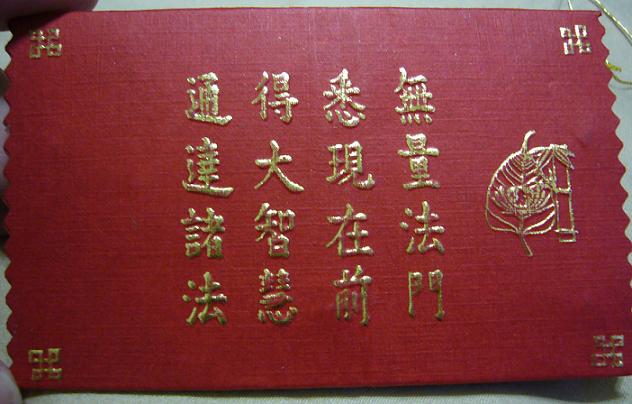 無量法門
悉現在前
得大智慧
通達諸法